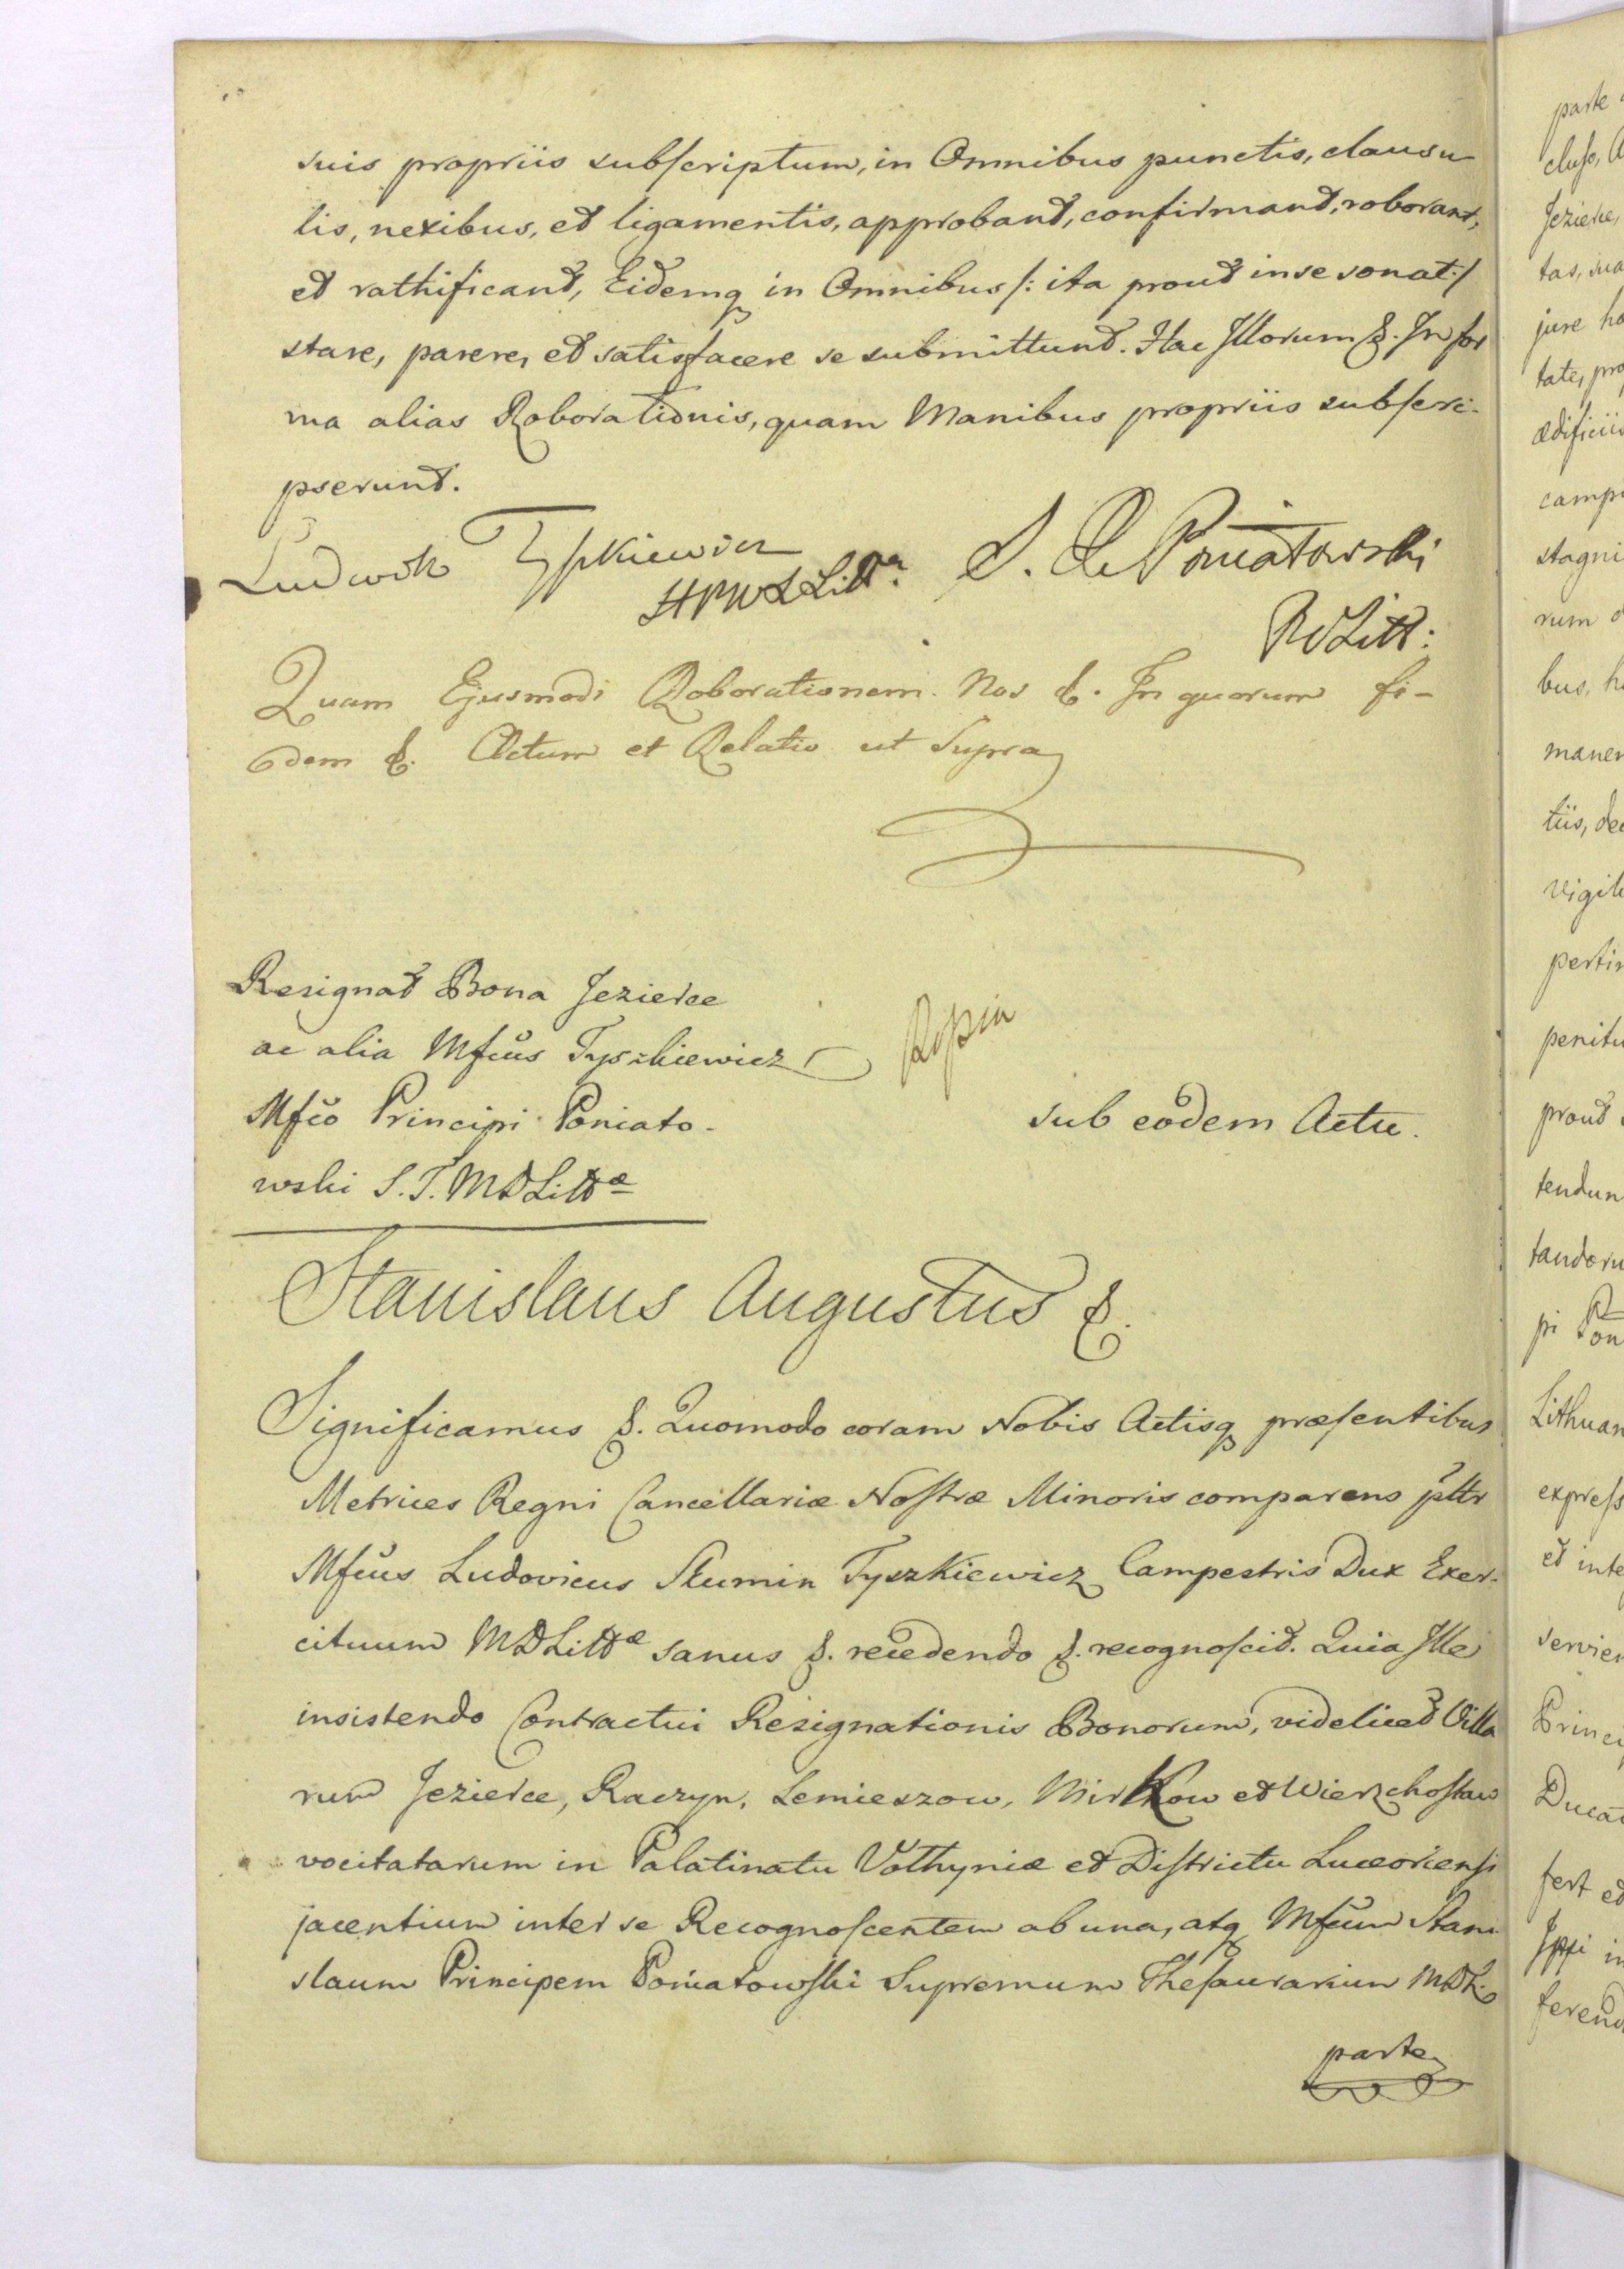 suis propriis subscriptum, in Omnibus punctis, clausu
lis, nexibus, et ligamentis, approbant, confirmant, roborant,
et rathificant, Eidemq in Omnibus /: ita prout in se sonat :/
stare, parere, et satisfacere se submittunt. Hac Illorum &. In for
ma alias Roborationis, quam Manibus propriis subscri-
pserunt.
Ludwik Tyszkiewicz
HPWXLitt
S. X Poniatowski
PWLitt:
Quam Ejusmodi Roborationem. Nos &. In quorum fi-
dem &. Actum et Relatio ut Supra
Resignat Bona Jezierce
ac alia Mfcus Tyszkiewicz
Mfco Principi Poniato-
wski S. T. MDLittæ
sub eodem Actu.
Stanislaus Augustus &.
Significamus &. Quomodo coram Nobis Actisq præsentibus
Metrices Regni Cancellariæ Nostræ Minoris comparens pltr
Mfcus Ludovicus Skumin Tyszkiewicz Campestris Dux Exer-
cituum MDLittæ sanus &. recedendo &. recognoscit. Quia Ille
insistendo Contractui Resignationis Bonorum, videlicet Villa
rum Jezierce, Raczyn, Lemieszow, Mirkow et Wierzchostaw
vocitatarum in Palatinatu Volhyniæ et Districtu Luceoriensi
jacentium inter se Recognoscentem ab una, atq Mfcum Stani
slaum Principem Poniatowski Supremum Thesaurarium MDL
parte